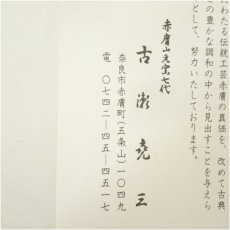 わたる伝統工芸赤膚の真価を、改めて古典
の豊かな調和の中から見出すことを与えら
として、努力いたしております。
赤膚山元窯七代
古瀬堯三
奈良市赤膚町(五条山)一〇四九
電 〇七四二―四五―四五一七